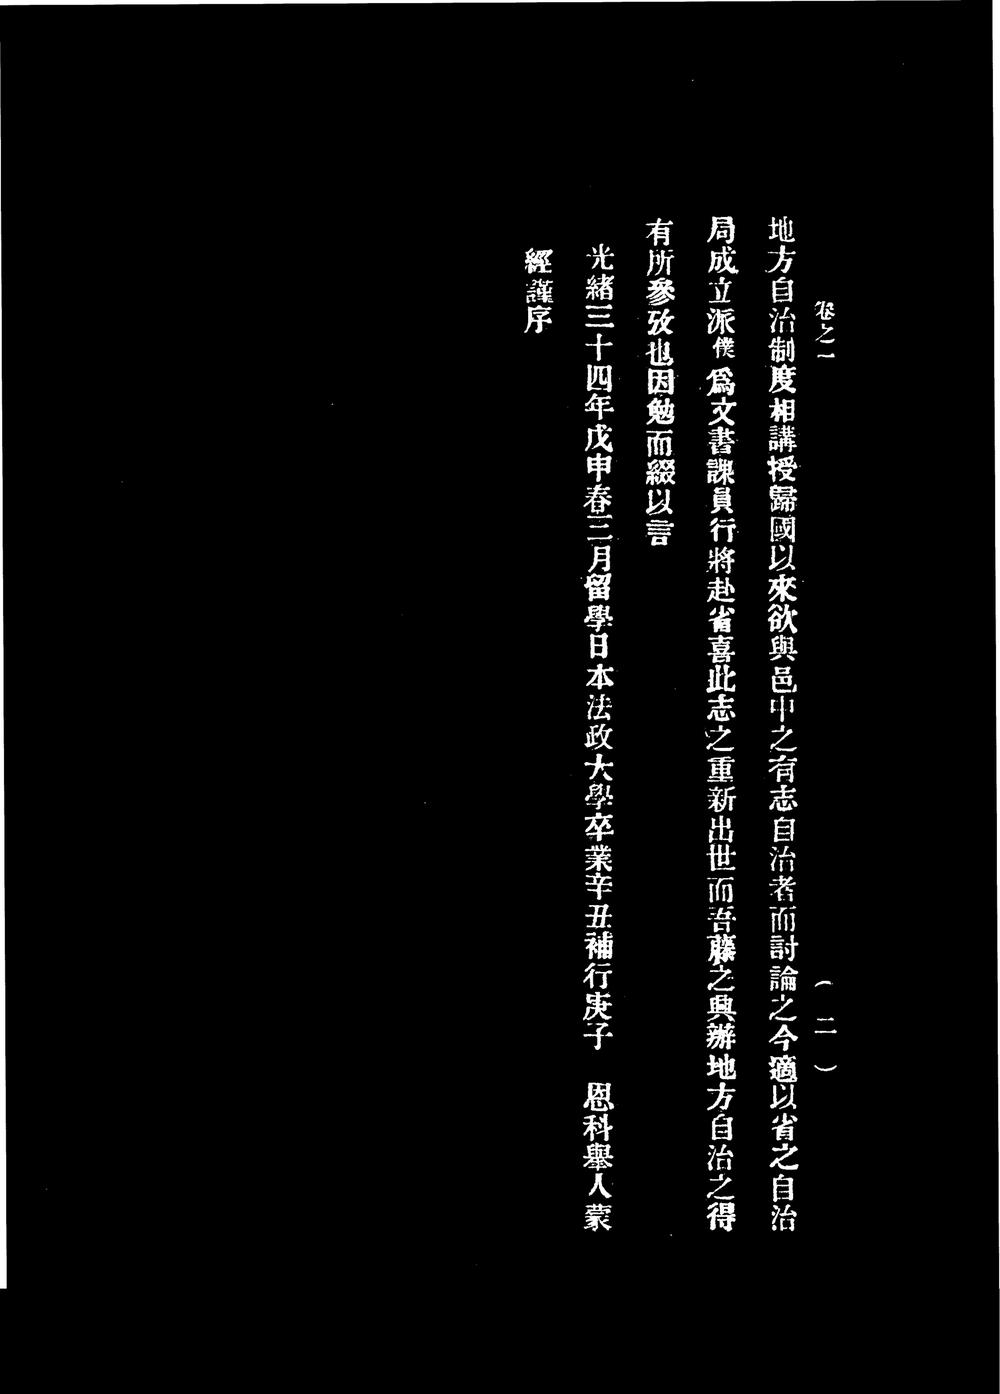 卷之一
(二)
地方自治制度相講授歸國以來欲與邑中之有志自治者而討論之今適以省之自治
局成立派僕爲文書課員行將赴省喜此志之重新出世而吾藤之興辦地方自治之得
有所參攷也因勉而綴以言
光緒三十四年戊申春三月留學日本法政大學卒業辛丑補行庚子　恩科舉人蒙
經謹序